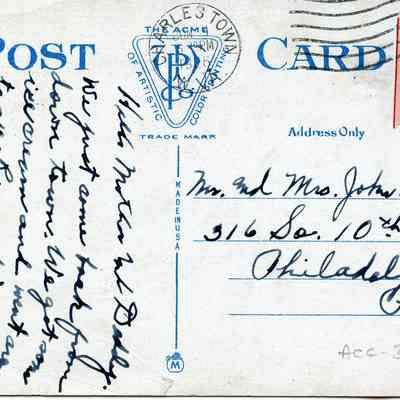 POST CARD
CHARLESTOWN
THE ACME
OF ARTISTIC
COLOR PRINTING
TRADE MARK
Address Only
MADE IN USA
M
Hello Mother and Daddy,
We just came back from
down town. We got some
icecream and went
Mr. and Mrs. John
316 So. 10th
Philadel
ACC-